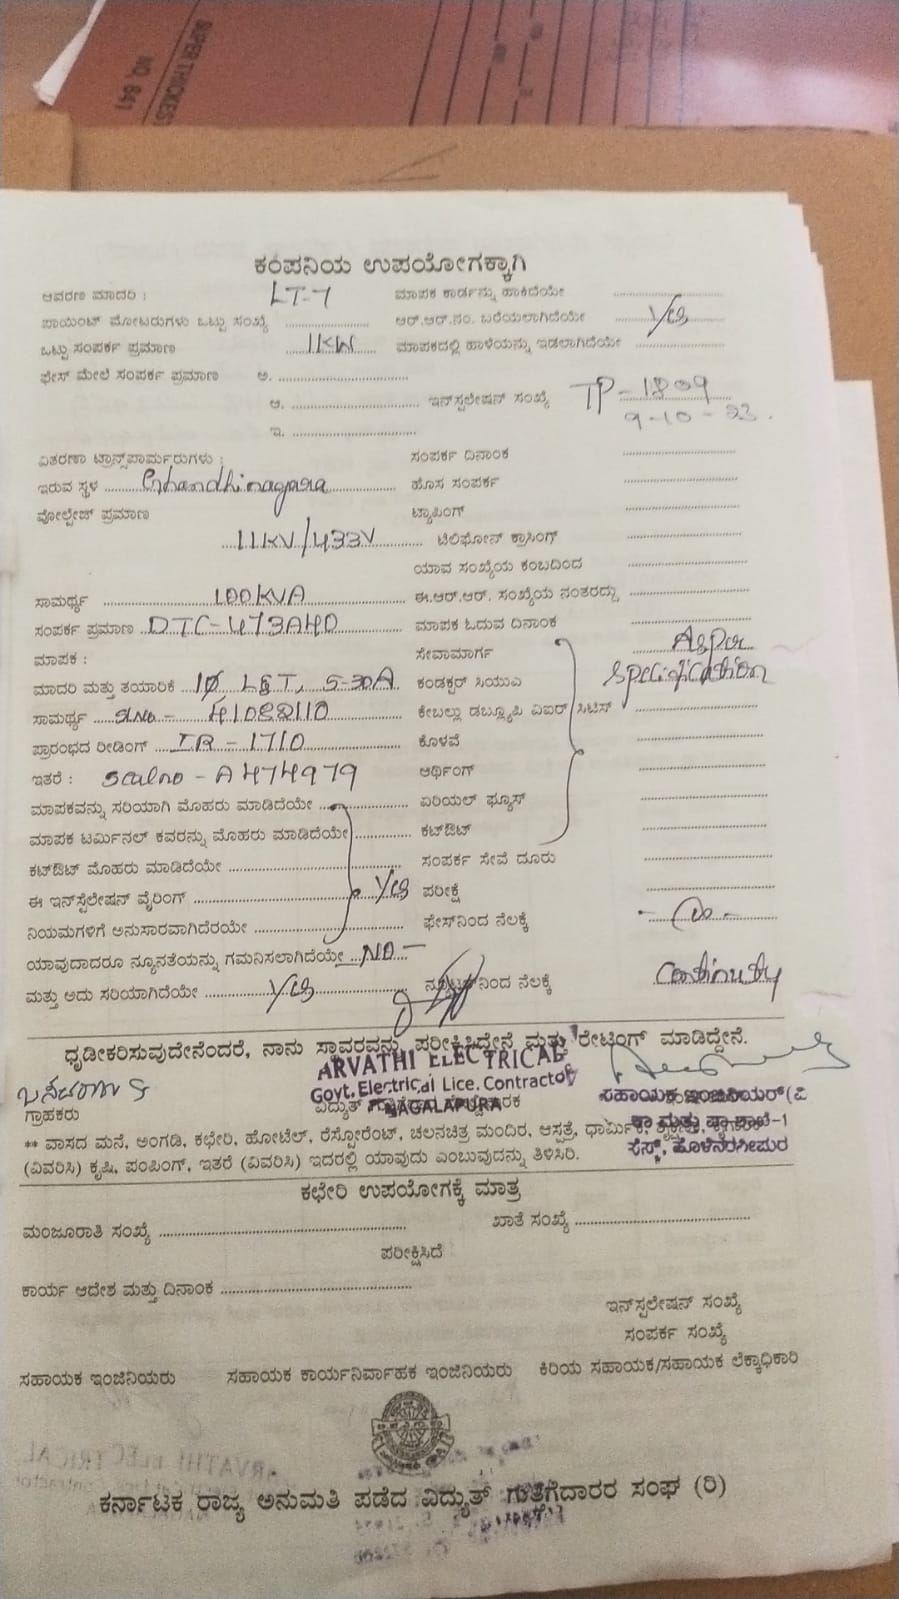 SUPER THICKEST
NO. 641
ಕಂಪನಿಯ ಉಪಯೋಗಕ್ಕಾಗಿ
ಆವರಣ ಮಾದರಿ : LT-7 ಮಾಪಕ ಕಾರ್ಡನ್ನು ಹಾಕಿದೆಯೇ
ಪಾಯಿಂಟ್ ಮೋಟರುಗಳು ಒಟ್ಟು ಸಂಖ್ಯೆ ಆರ್.ಆರ್.ನಂ. ಬರೆಯಲಾಗಿದೆಯೇ Yes
ಒಟ್ಟು ಸಂಪರ್ಕ ಪ್ರಮಾಣ 1KW ಮಾಪಕದಲ್ಲಿ ಹಾಳೆಯನ್ನು ಇಡಲಾಗಿದೆಯೇ
ಫೇಸ್ ಮೇಲೆ ಸಂಪರ್ಕ ಪ್ರಮಾಣ ಅ.
ಆ. ಇನ್‌ಸ್ಟಲೇಷನ್ ಸಂಖ್ಯೆ TP-1809
9-10-23.
ಇ.
ವಿತರಣಾ ಟ್ರಾನ್ಸ್‌ಪಾರ್ಮರುಗಳು : ಸಂಪರ್ಕ ದಿನಾಂಕ
ಇರುವ ಸ್ಥಳ Ghandhinagara ಹೊಸ ಸಂಪರ್ಕ
ವೋಲ್ಟೇಜ್ ಪ್ರಮಾಣ ಟ್ಯಾಪಿಂಗ್
11KV/433V ಟೆಲಿಫೋನ್ ಕ್ರಾಸಿಂಗ್
ಯಾವ ಸಂಖ್ಯೆಯ ಕಂಬದಿಂದ
ಸಾಮರ್ಥ್ಯ 100KVA ಈ.ಆರ್.ಆರ್. ಸಂಖ್ಯೆಯ ನಂತರದ್ದು
ಸಂಪರ್ಕ ಪ್ರಮಾಣ DTC-473A40 ಮಾಪಕ ಓದುವ ದಿನಾಂಕ
ಮಾಪಕ : ಸೇವಾಮಾರ್ಗ As per
ಮಾದರಿ ಮತ್ತು ತಯಾರಿಕೆ 1ø L&T, 5-30A ಕಂಡಕ್ಟರ್ ಸಿಯುಎ specification
ಸಾಮರ್ಥ್ಯ Sl.No - 41052110 ಕೇಬಲ್ಲು ಡಬ್ಲ್ಯೂಪಿ ವಿಐರ್ ಸಿಟಿಸ್
ಪ್ರಾರಂಭದ ರೀಡಿಂಗ್ IR - 1710 ಕೊಳವೆ
ಇತರೆ : sealno - A474979 ಆರ್ಥಿಂಗ್
ಮಾಪಕವನ್ನು ಸರಿಯಾಗಿ ಮೊಹರು ಮಾಡಿದೆಯೇ ಏರಿಯಲ್ ಫ್ಯೂಸ್
ಮಾಪಕ ಟರ್ಮಿನಲ್ ಕವರನ್ನು ಮೊಹರು ಮಾಡಿದೆಯೇ ಕಟ್‌ಔಟ್
ಕಟ್‌ಔಟ್ ಮೊಹರು ಮಾಡಿದೆಯೇ ಸಂಪರ್ಕ ಸೇವೆ ದೂರು
ಈ ಇನ್‌ಸ್ಟೆಲೇಷನ್ ವೈರಿಂಗ್ Yes ಪರೀಕ್ಷೆ
ನಿಯಮಗಳಿಗೆ ಅನುಸಾರವಾಗಿದೆರಯೇ ಫೇಸ್‌ನಿಂದ ನೆಲಕ್ಕೆ
ಯಾವುದಾದರೂ ನ್ಯೂನತೆಯನ್ನು ಗಮನಿಸಲಾಗಿದೆಯೇ NO -
ಮತ್ತು ಅದು ಸರಿಯಾಗಿದೆಯೇ Yes ನ್ಯೂಟ್ರಲ್‌ನಿಂದ ನೆಲಕ್ಕೆ Continuty
ಧೃಡೀಕರಿಸುವುದೇನೆಂದರೆ, ನಾನು ಸ್ಥಾವರವನ್ನು ಪರೀಕ್ಷಿಸಿದ್ದೇನೆ ಮತ್ತು ರೇಟಿಂಗ್ ಮಾಡಿದ್ದೇನೆ.
ARVATHI ELECTRICAL
Govt. Electrical Lice. Contractor
NAGALAPURA
ಸಹಾಯಕ ಇಂಜಿನಿಯರ್(ವಿ
ಸೆಸ್ಕ್, ಹೊಳೆನರಸೀಪುರ
ಗ್ರಾಹಕರು
** ವಾಸದ ಮನೆ, ಅಂಗಡಿ, ಕಛೇರಿ, ಹೋಟೆಲ್, ರೆಸ್ಟೋರೆಂಟ್, ಚಲನಚಿತ್ರ ಮಂದಿರ, ಆಸ್ಪತ್ರೆ, ಧಾರ್ಮಿಕ,
(ವಿವರಿಸಿ) ಕೃಷಿ, ಪಂಪಿಂಗ್, ಇತರೆ (ವಿವರಿಸಿ) ಇದರಲ್ಲಿ ಯಾವುದು ಎಂಬುವುದನ್ನು ತಿಳಿಸಿರಿ.
ಕಛೇರಿ ಉಪಯೋಗಕ್ಕೆ ಮಾತ್ರ
ಮಂಜೂರಾತಿ ಸಂಖ್ಯೆ ಖಾತೆ ಸಂಖ್ಯೆ
ಪರೀಕ್ಷಿಸಿದೆ
ಕಾರ್ಯ ಆದೇಶ ಮತ್ತು ದಿನಾಂಕ
ಇನ್‌ಸ್ಟಲೇಷನ್ ಸಂಖ್ಯೆ
ಸಂಪರ್ಕ ಸಂಖ್ಯೆ
ಸಹಾಯಕ ಇಂಜಿನಿಯರು ಸಹಾಯಕ ಕಾರ್ಯನಿರ್ವಾಹಕ ಇಂಜಿನಿಯರು ಕಿರಿಯ ಸಹಾಯಕ/ಸಹಾಯಕ ಲೆಕ್ಕಾಧಿಕಾರಿ
ಕರ್ನಾಟಕ ರಾಜ್ಯ ಅನುಮತಿ ಪಡೆದ ವಿದ್ಯುತ್ ಗುತ್ತಿಗೆದಾರರ ಸಂಘ (ರಿ)